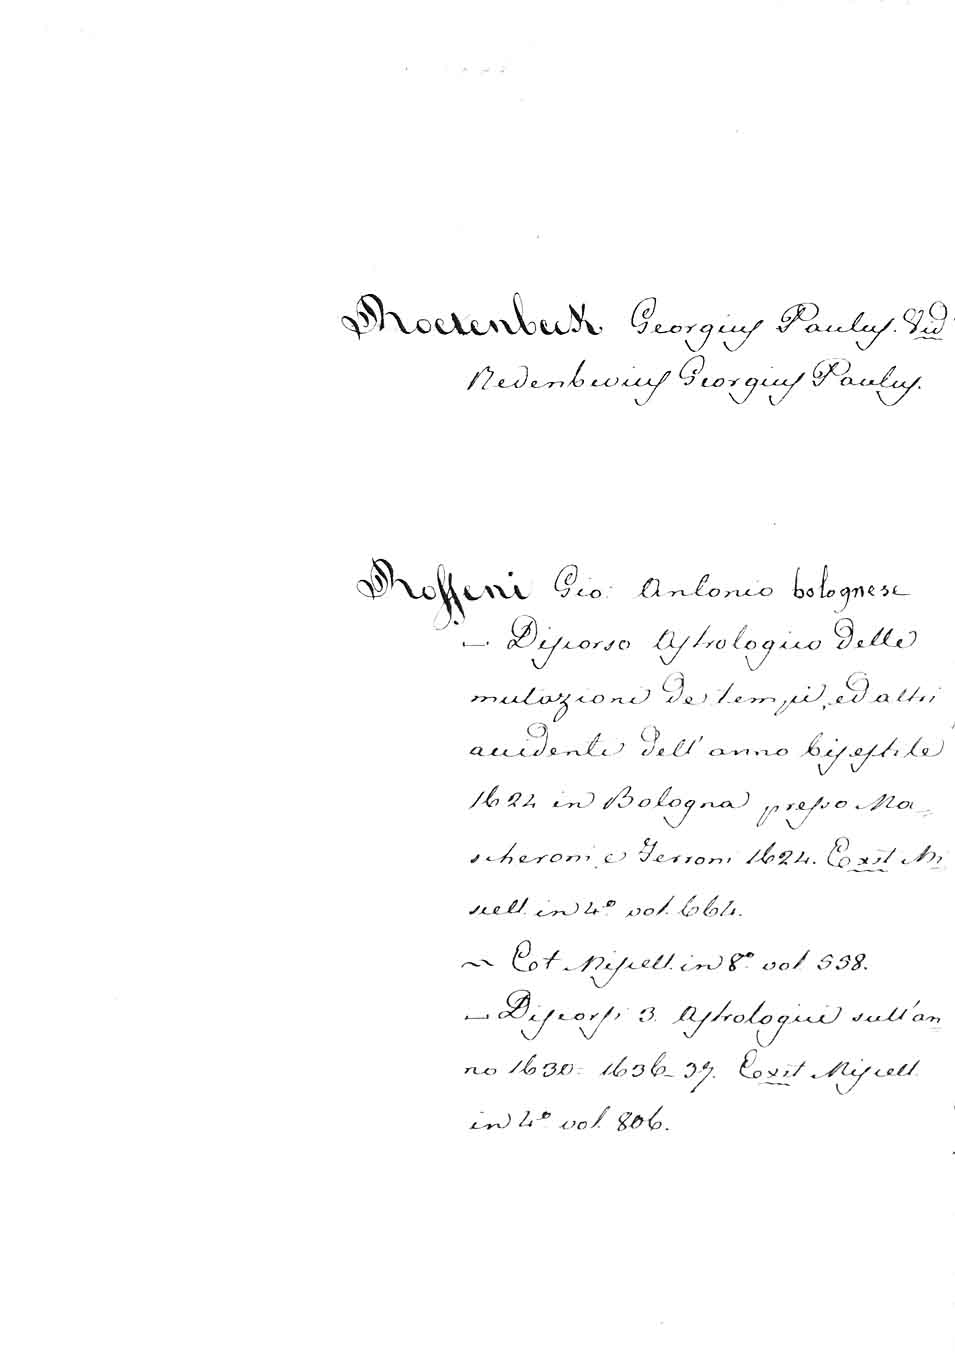 Roetenbeck Georgius Paulus. Vid
Redenbecius Georgius Paulus.
Roffeni Gio: Antonio bolognese
— Discorso Astrologico delle
mutazioni de' tempi, ed altri
accidenti dell'anno bisestile
1624 in Bologna presso Ma=
scheroni, e Ferroni 1624. Exst Mi
scell. in 4º vol. 664.
~ Ext Miscell. in 8º vol. 558.
— Discorsi 3. Astrologici sull'an=
no 1630- 1636-37. Exst Miscell.
in 4º vol. 806.